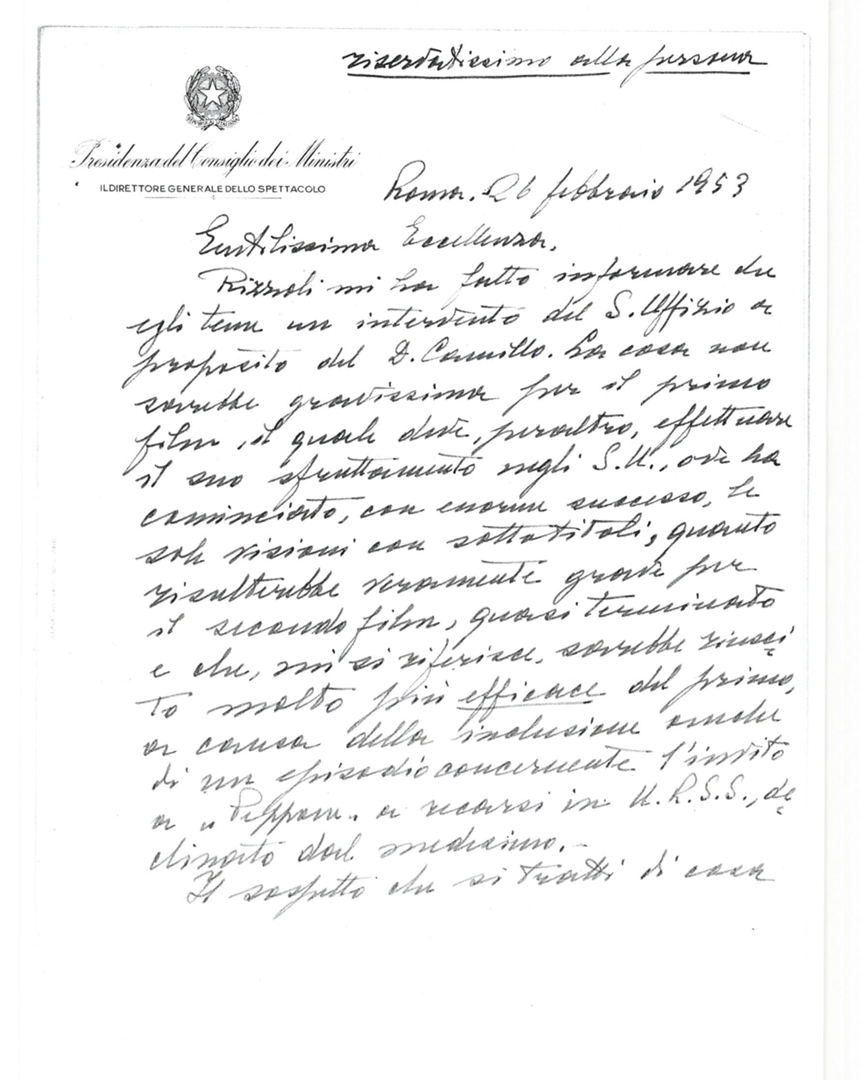 riservatissimo alla persona
Presidenza del Consiglio dei Ministri
IL DIRETTORE GENERALE DELLO SPETTACOLO
Roma. 26 febbraio 1953
Gentilissima Eccellenza,
Rizzoli mi ha fatto informare che
egli teme un intervento del S. Uffizio a
proposito del D. Camillo. La cosa non
sarebbe gravissima per il primo
film, il quale deve, peraltro, effettuare
il suo sfruttamento negli S.U., ove ha
cominciato, con enorme successo, le
sole visioni con sottotitoli, quanto
risulterebbe veramente grave per
il secondo film, quasi terminato
e che, mi si riferisce, sarebbe riusci
to molto più efficace del primo,
a causa della inclusione anche
di un episodio concernente l'invito
a "Peppone" a recarsi in U.R.S.S., de
clinato dal medesimo.-
Il sospetto che si tratti di cosa